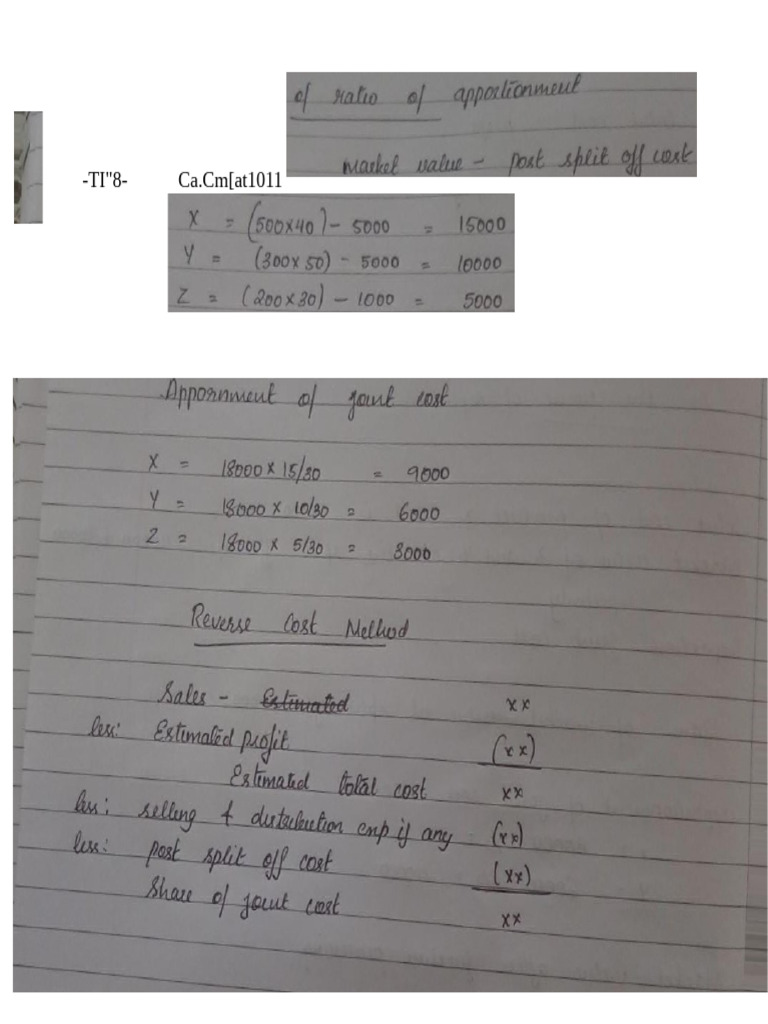 of ratio of apportionment
market value - post split off cost
-TI"8- Ca.Cm[at1011
X = (500x40) - 5000 = 15000
Y = (300x50) - 5000 = 10000
Z = (200x30) - 1000 = 5000
Appornment of joint cost
X = 18000 x 15/30 = 9000
Y = 18000 x 10/30 = 6000
Z = 18000 x 5/30 = 3000
Reverse Cost Method
Sales - Estimated xx
less: Estimated profit (xx)
Estimated total cost xx
less: selling & distribution exp if any (xx)
less: post split off cost (xx)
Share of joint cost xx